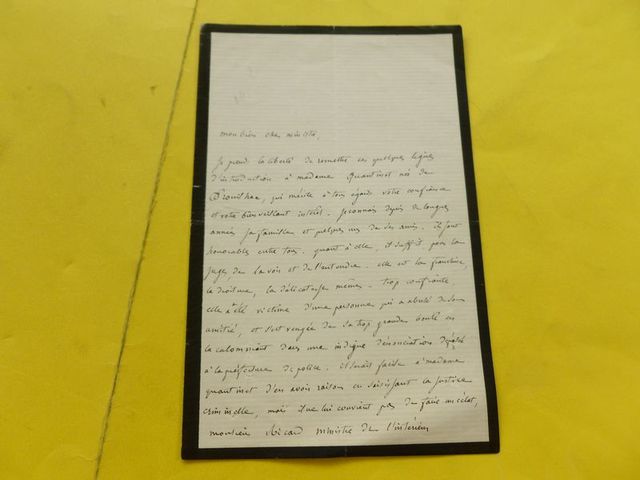 mon bien cher ministre,
Je prends la liberté de remettre ces quelques lignes
d'introduction à madame Quantinet née de
Drouilhac, qui mérite à tous égards votre confiance
et votre bienveillant intérêt. je connais depuis de longues
années sa famille et quelques uns de ses amis. ils sont
honorables entre tous. quant à elle, il suffit pour la
juger, de la voir et de l'entendre. elle est la franchise,
la droiture, la délicatesse mêmes. trop confiante
elle a été victime d'une personne qui a abusé de son
amitié, et s'est vengée de sa trop grande bonté en
la calomniant dans une indigne dénonciation
à la préfecture de police. il serait facile à madame
quantinet d'en avoir raison en saisissant la justice
criminelle, mais il ne lui convient pas de faire un éclat,
monsieur Ricard ministre de l'intérieur